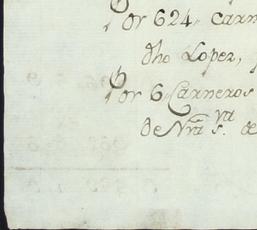 Por 624, carn
dho Lopez,
Por 6 Carneros
de Nrã S.ª de